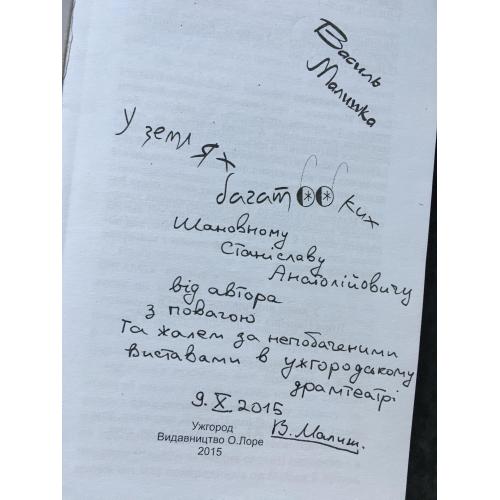 Василь
Малишка
У земл ях
багатооких
Шановному
Станіславу
Анатолійовичу
від автора
з повагою
та жалем за непобаченими
виставами в ужгородському
драмтеатрі
9. X 2015
В. Малиш.
Ужгород
Видавництво О.Лоре
2015